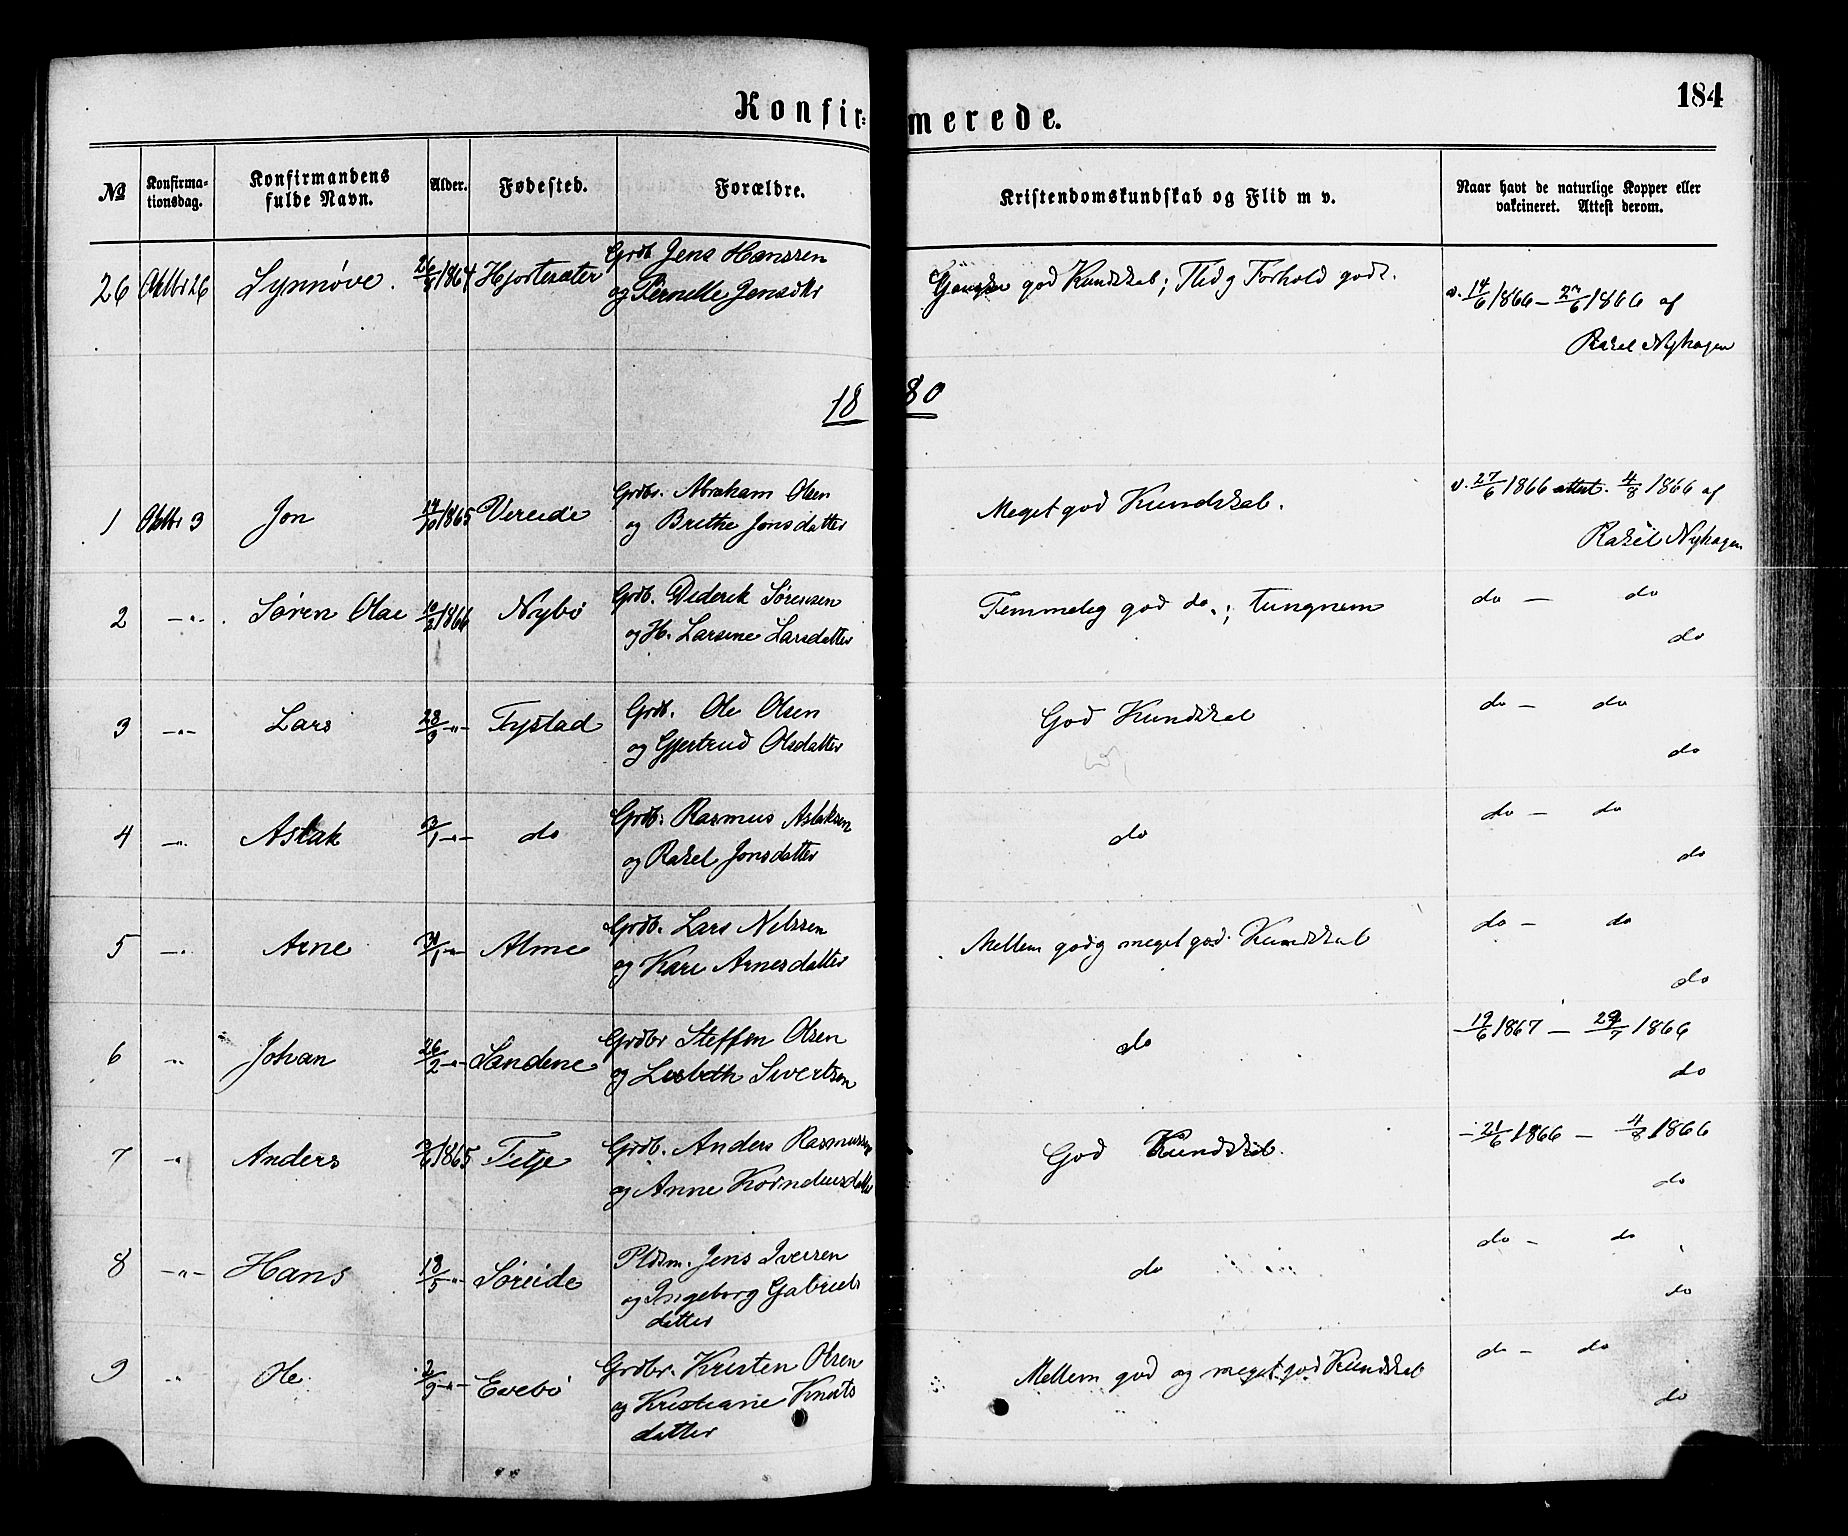 184
Konfir=merede.
No
Konfirma-
tionsdag.
Konfirmandens
fulde Navn.
Alder.
Fødested.
Forældre.
Kristendomskundskab og Flid m v.
Naar havt de naturlige Kopper eller
vakcineret. Attest derom.
26 Oktbr 26 Synnøve. 26/9 1864 Hjortesæter Grdb Jens Hanssen
og Pernelle Jensdtr
god Kundskab; Flid og Forhold godt.
v. 14/6 1866 — 1866 af
Rakel Nyhagen
1880
1 Oktbr 3 Jon 14/10 1865 Vereide Grdbr. Abraham Olsen
og Brithe Jonsdatter
Meget god Kundskab.
v. 27/6 1866 attest. 4/8 1866 af
Rakel Nyhagen
2 —"— Søren Olai 10/2 1866 Nybø Grdb. Diderik Sørensen
og H. Larsine Larsdatter
Temmelig god do.; tungnem
do — do
do
3 —"— Lars 28/3 —"— Tystad Grdb. Ole Olsen
og Gjertrud Olsdatter
God Kundskab
do — do
do
4 —"— Aslak 3/1 —"— do Grdb. Rasmus Aslaksen
og Rakel Jonsdatter
do
do — do
do
5 —"— Arne 31/1 —"— Alme Grdb. Lars Nilssen
og Kari Arnesdatter
Mellem god og meget god Kundskab
do — do
do
6 " Johan 26/2 —"— Sandene Grdbr Steffen Olsen
og Lisbeth Sivertsen
do
— 19/6 1867 — 29/7 1866
do
7 —"— Anders 3/6 1865 Tetje Grdb. Anders Rasmussen
og Anne
God Kundskab.
— 21/6 1866 — 4/8 1866
do
8 —"— Hans 18/5 —"— Søreide Pldsm. Jens Iversen
og Ingeborg Gabriels
datter
do
do — do
do
9 " Ole 2/9 —"— Evebø Grdbr. Kristen Olsen
og Kristiane Knuts
datter
Mellem god og meget god Kundskab
do — do
do